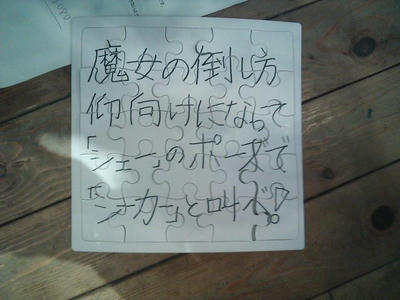 魔女の倒し方
仰向けになって
「シェー」のポーズで
「シナカー」と叫ぶ。